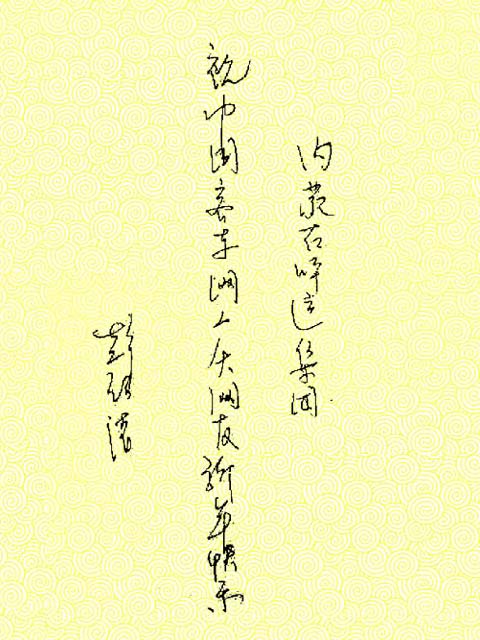 内蒙古呼运集团
祝中国客车网广大网友新年快乐
彭